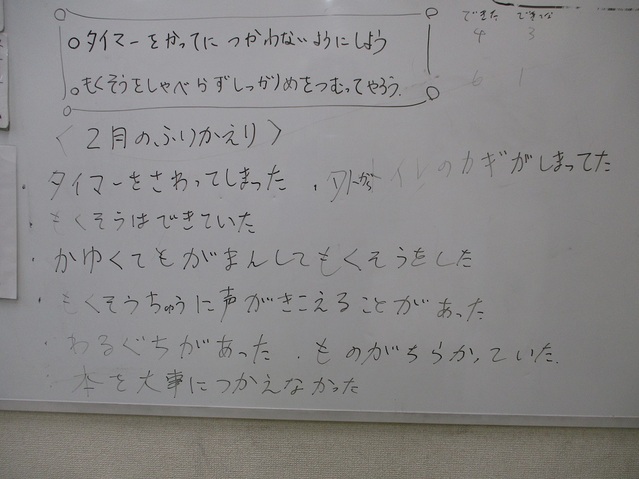 できた できなかった
4 3
6 1
○タイマーをかってにつかわないようにしよう
○もくそうをしゃべらずしっかりめをつむってやろう.
〈2月のふりかえり〉
タイマーをさわってしまった ・外からトイレのカギがしまってた
・もくそうはできていた
・かゆくてもがまんしてもくそうをした
・もくそうちゅうに声がきこえることがあった
・わるぐちがあった ・ものがちらかっていた.
・本を大事につかえなかった